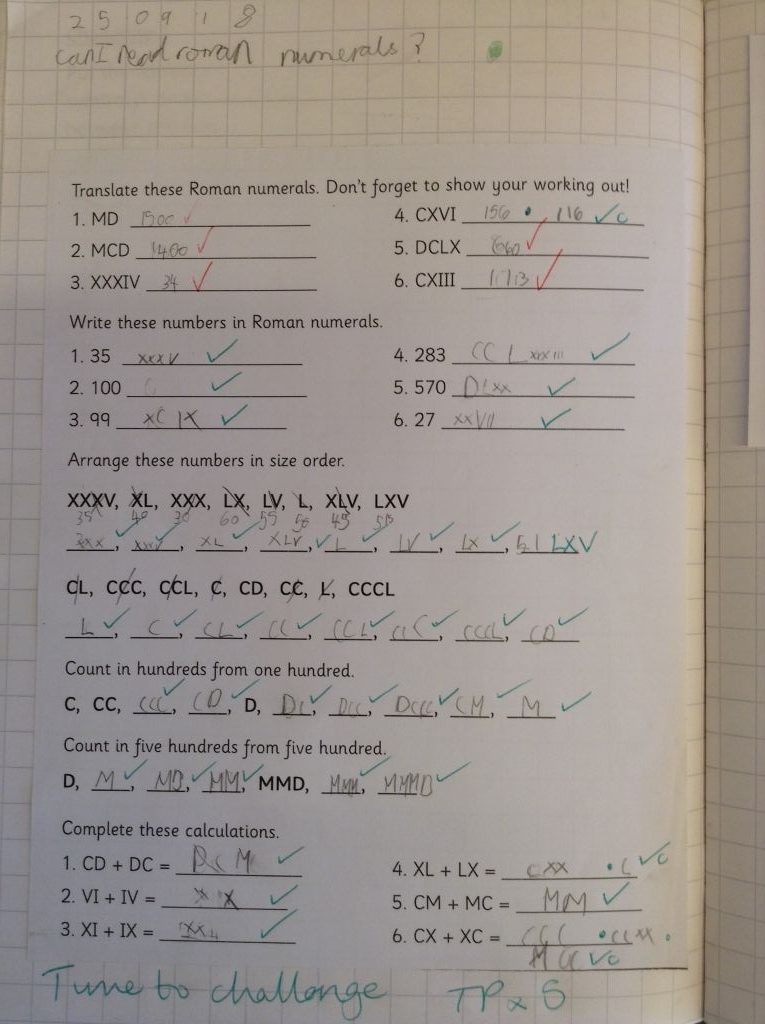 25 09 18
can I read roman numerals ?
Translate these Roman numerals. Don't forget to show your working out!
1. MD 1500
4. CXVI 156 116
2. MCD 1400
5. DCLX 660
3. XXXIV 34
6. CXIII
Write these numbers in Roman numerals.
1. 35 XXXV
4. 283 CC L xxxiii
2. 100 C
5. 570 DLxx
3. 99 XC IX
6. 27 xxVII
Arrange these numbers in size order.
XXXV, XL, XXX, LX, LV, L, XLV, LXV
35 40 30 60 55 50 45
xxx, xxxv, XL, XLV, L, LV, LX, LXV
CL, CCC, CCL, C, CD, CC, L, CCCL
L, C, CL, CC, CCL, CCC, CCCL, CD
Count in hundreds from one hundred.
C, CC, CCC, CD, D, DC, DCC, DCCC, CM, M
Count in five hundreds from five hundred.
D, M, MD, MM, MMD, MMM, MMMD
Complete these calculations.
1. CD + DC = M
4. XL + LX = CXX C
2. VI + IV = X
5. CM + MC = MM
3. XI + IX = XX
6. CX + XC = CCC CCXX
CC
Time to challenge TPx5